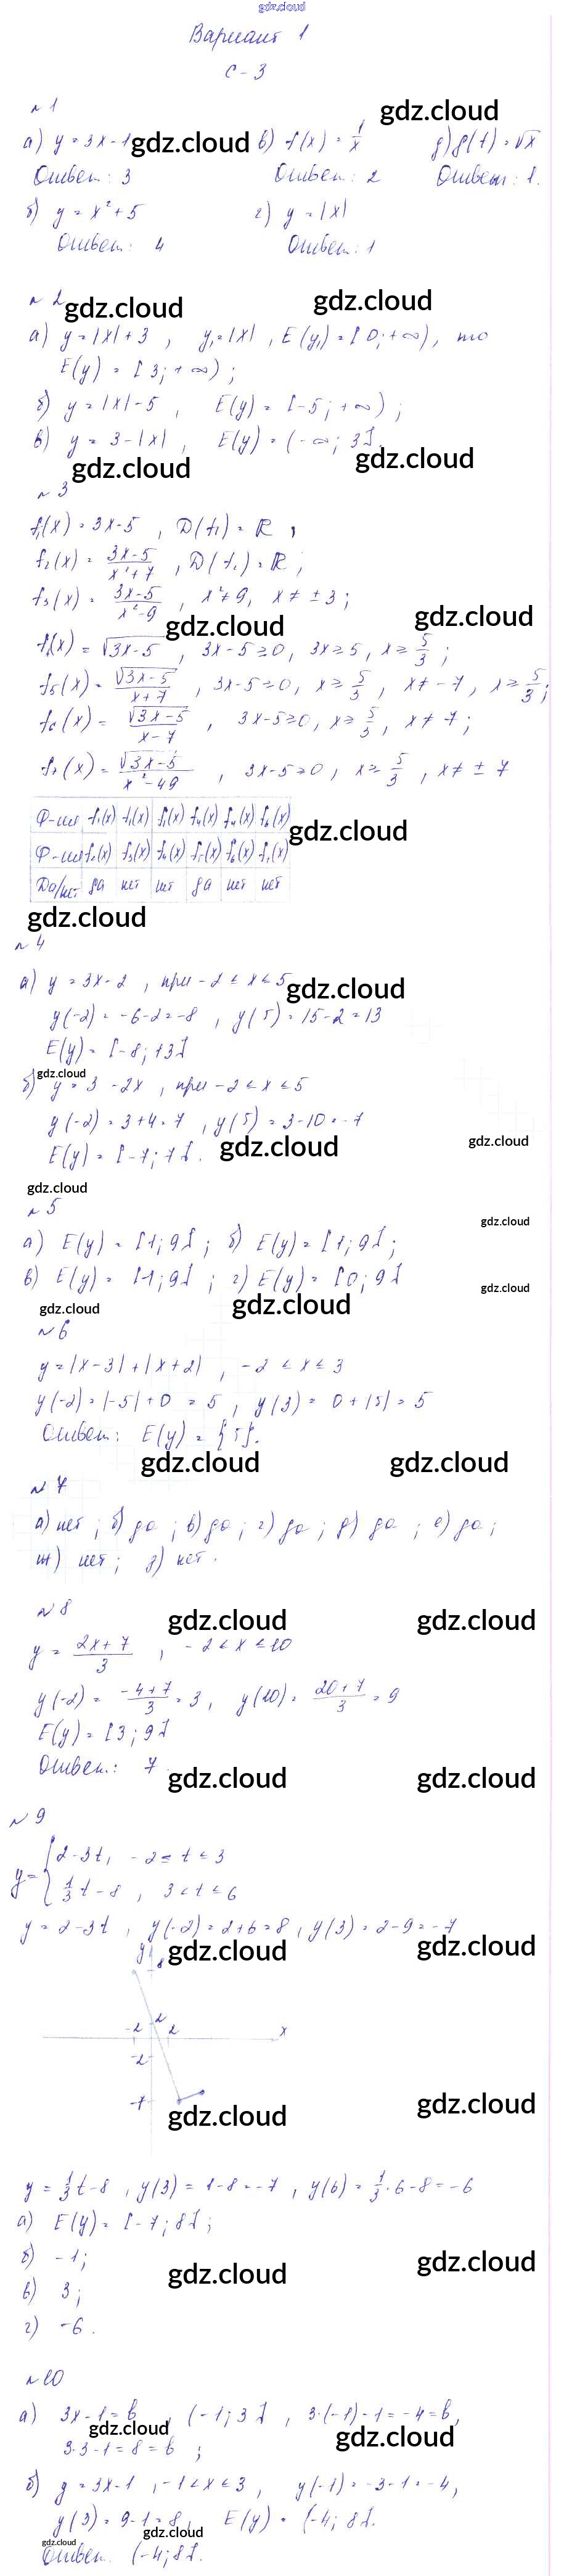 gdz.cloud
Вариант 1
С-3
№1
gdz.cloud
а) y = 3x-1 gdz.cloud в) f(x) = 1/x д) g(t) = √x
Ответ: 3 Ответ: 2 Ответ: 1.
б) y = x²+5 г) y = |x|
Ответ: 4 Ответ: 1
№2 gdz.cloud gdz.cloud
а) y = |x|+3, y₁=|x|, E(y₁) = [0; +∞), то
E(y) = [3; +∞);
б) y = |x|-5, E(y) = [-5; +∞);
в) y = 3-|x|, E(y) = (-∞; 3].
gdz.cloud gdz.cloud
№3
f₁(x) = 3x-5, D(f₁) = R,
f₂(x) = (3x-5)/(x²+7), D(f₂) = R;
f₃(x) = (3x-5)/(x²-9), x²≠9, x ≠ ±3;
gdz.cloud gdz.cloud
f₄(x) = √(3x-5), 3x-5≥0, 3x≥5, x≥5/3;
f₅(x) = √(3x-5)/(x+7), 3x-5≥0, x≥5/3, x≠-7, x≥5/3;
f₆(x) = √(3x-5)/(x-7), 3x-5≥0, x≥5/3, x≠7;
f₇(x) = √(3x-5)/(x²-49), 3x-5≥0, x≥5/3, x≠±7
Ф-ция f₁(x) f₁(x) f₁(x) f₄(x) f₄(x) f₆(x)
gdz.cloud
Ф-ция f₂(x) f₃(x) f₄(x) f₅(x) f₆(x) f₇(x)
Да/нет да нет нет да нет нет
gdz.cloud
№4
а) y = 3x-2, при -2 ≤ x ≤ 5
gdz.cloud
y(-2) = -6-2=-8, y(5) = 15-2=13
E(y) = [-8; 13]
gdz.cloud
б) y = 3-2x, при -2 ≤ x ≤ 5
y(-2) = 3+4=7, y(5) = 3-10=-7
gdz.cloud gdz.cloud
E(y) = [-7; 7].
gdz.cloud
№5
gdz.cloud
а) E(y) = [1; 9]; б) E(y) = [1; 9];
в) E(y) = [1; 9]; г) E(y) = [0; 9]
gdz.cloud
gdz.cloud gdz.cloud
№6
y = |x-3|+|x+2|, -2 ≤ x ≤ 3
y(-2) = |-5|+0 = 5, y(3) = 0+|5| = 5
Ответ: E(y) = {5}.
gdz.cloud gdz.cloud
№7
а) нет; б) да; в) да; г) да; д) да; е) да;
ж) нет; з) нет.
№8 gdz.cloud gdz.cloud
y = (2x+7)/3, -2 ≤ x ≤ 10
y(-2) = (-4+7)/3 = 3, y(10) = (20+7)/3 = 9
E(y) = [3; 9]
Ответ: 7.
gdz.cloud gdz.cloud
№9
y = { 2-3t, -2 ≤ t ≤ 3
1/3 t-8, 3 < t ≤ 6
y = 2-3t, y(-2) = 2+6=8, y(3) = 2-9=-7
gdz.cloud gdz.cloud
y 8
2
-2 2 x
-2
-7
gdz.cloud gdz.cloud
y = 1/3 t-8, y(3) = 1-8=-7, y(6) = 1/3·6-8=-6
а) E(y) = [-7; 8];
б) -1;
gdz.cloud gdz.cloud
в) 3;
г) -6.
№10
а) 3x-1=b, (-1; 3], 3·(-1)-1=-4=b,
gdz.cloud gdz.cloud
3·3-1=8=b;
б) y = 3x-1, -1<x≤3, y(-1) = -3-1=-4,
y(3) = 9-1=8, E(y) = (-4; 8].
gdz.cloud gdz.cloud
Ответ. (-4; 8].